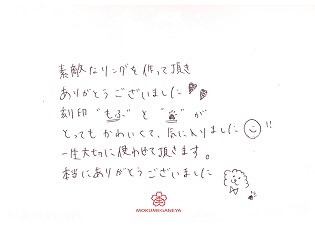 素敵なリングを作って頂き
ありがとうございました
刻印“もふ”と“ ”が
とってもかわいくて、気に入りました!!
一生大切に使わせて頂きます。
本当にありがとうございました
MOKUMEGANEYA